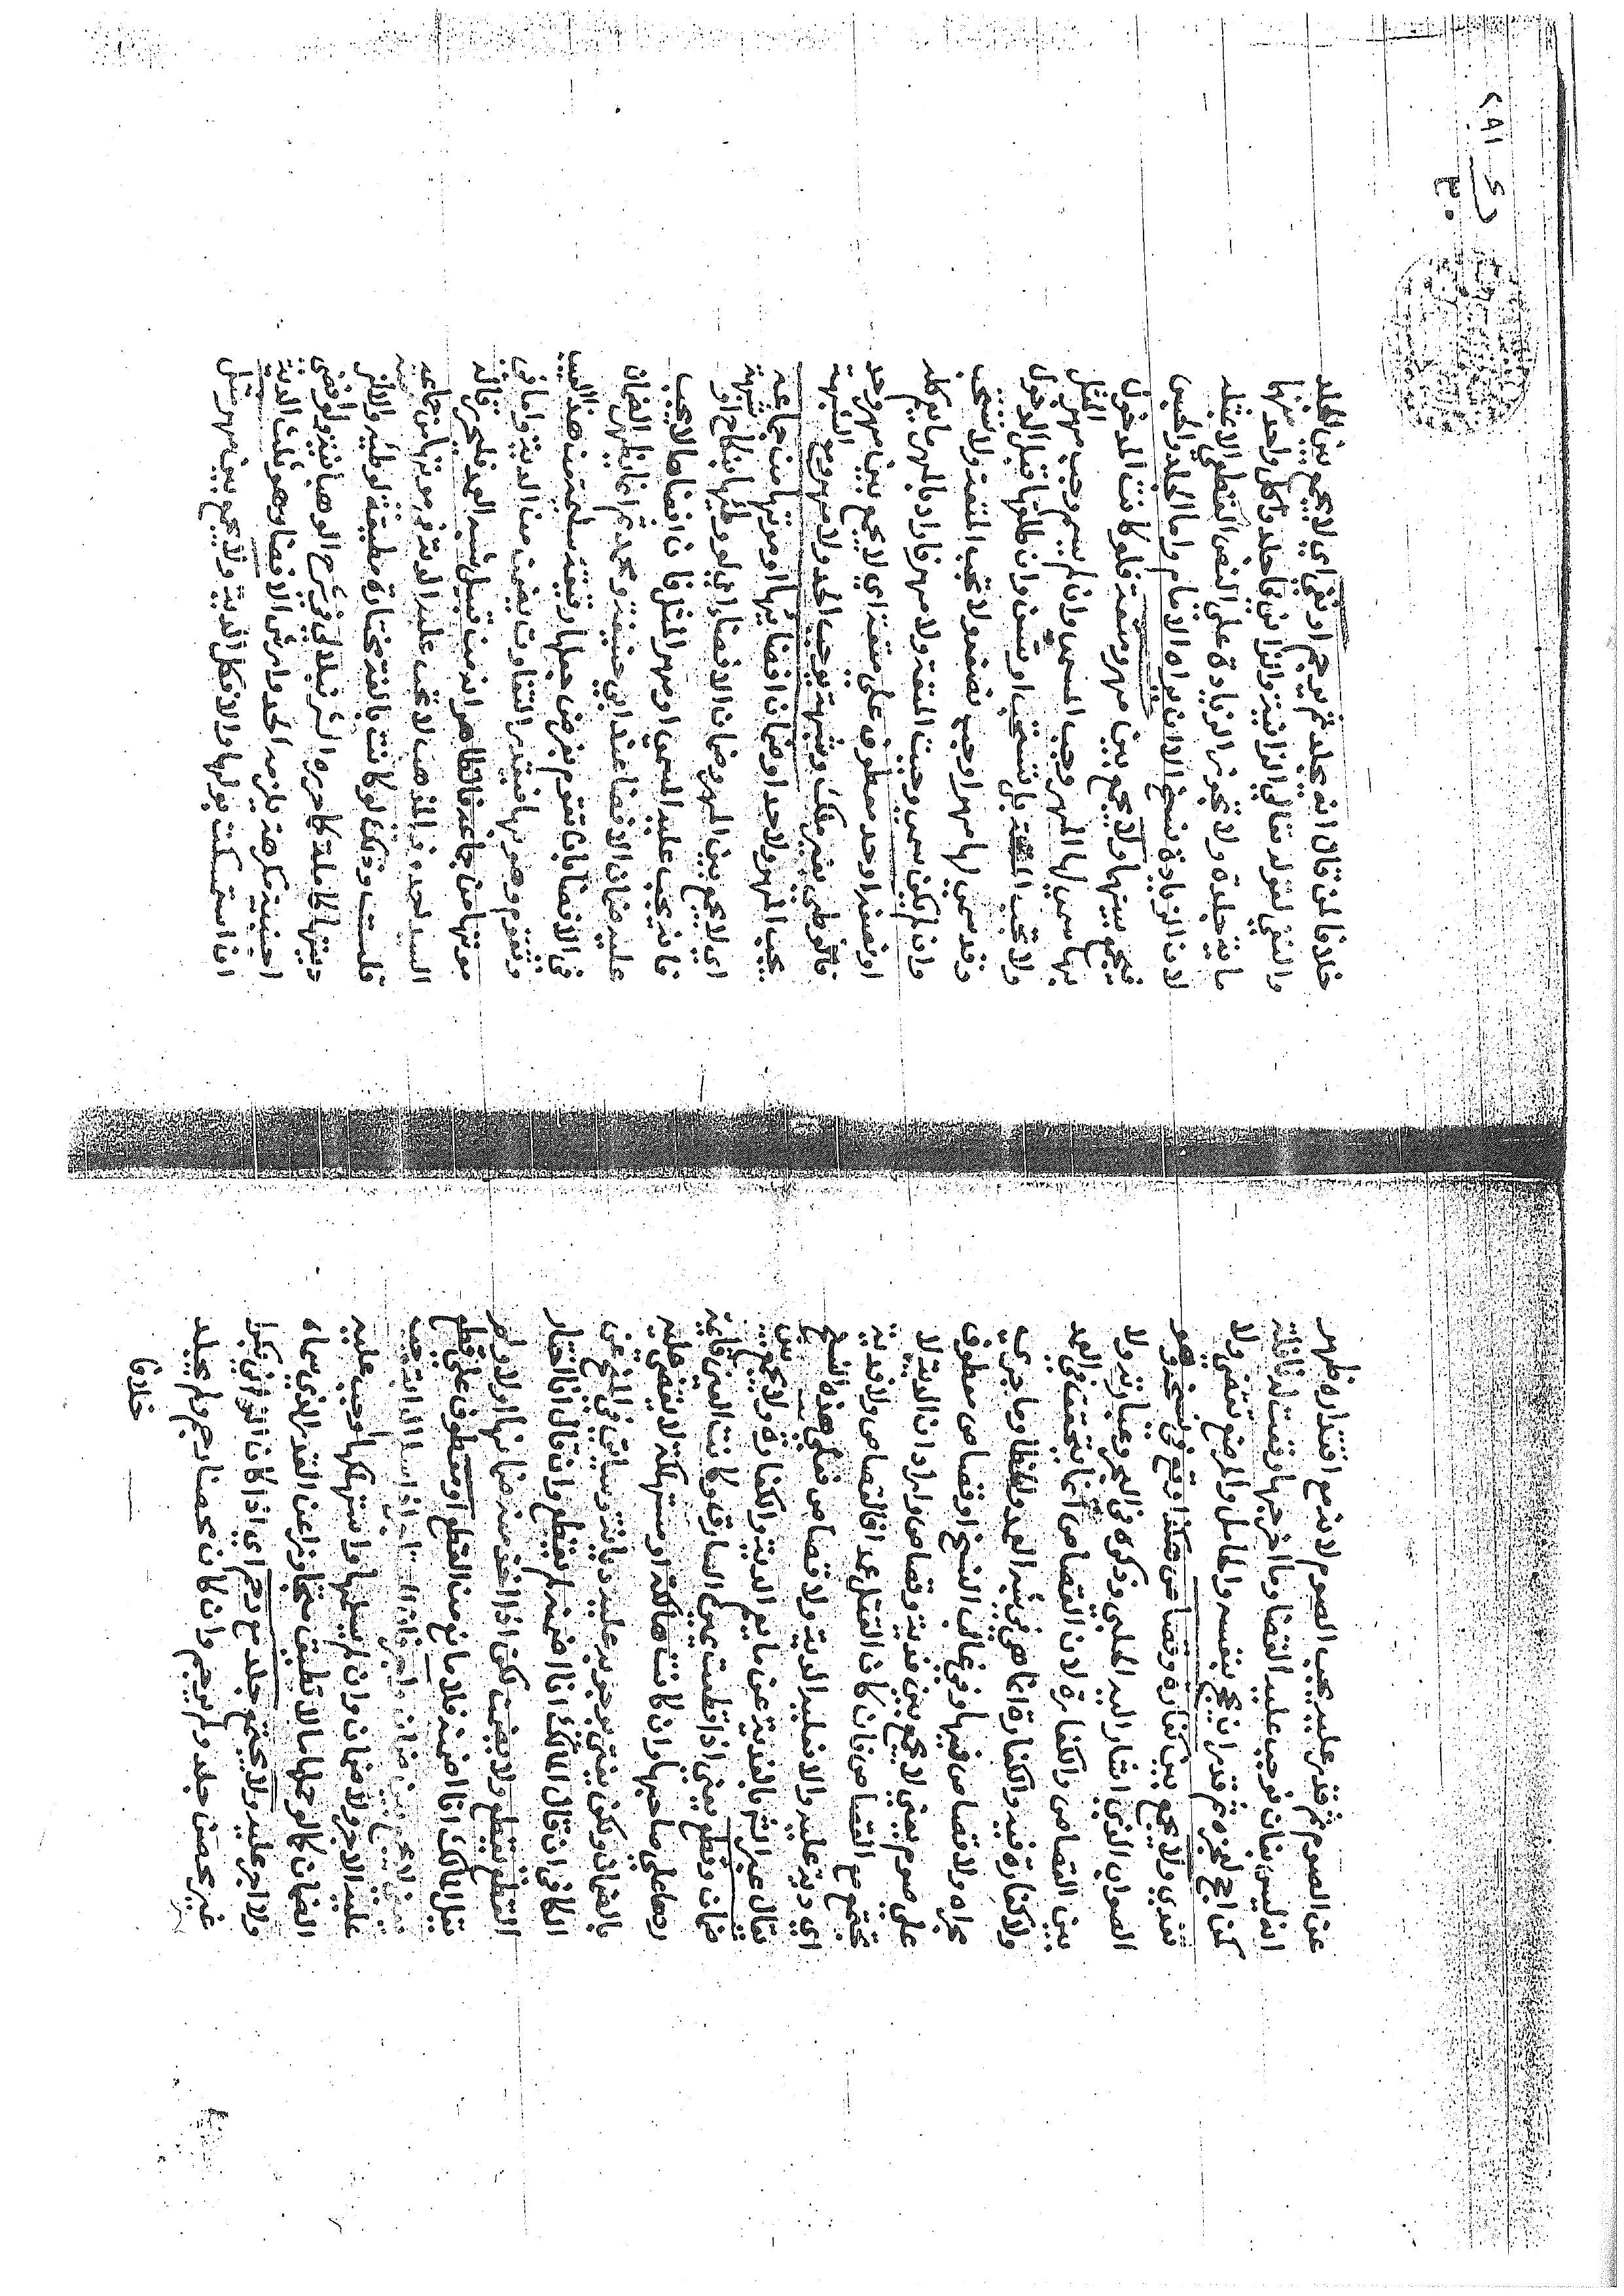 عن الصوم ثم قدر عليه يجب الصوم لانه مع اقتداره ظهر
انه ليس بفان فوجب عليه القضا وما اخرجها وقعت له نافلة
كمن احج لعجزه ثم قدر ان يحج بنفسه والحامل والمرضع تقضى ولا
تفدي ولا يجمع بين كفارة وقصاص هكذا وقع في نسخ وهو
الصواب الذي اشار اليه الحلبي وذكره في البحر وعبارته ولا
بين القصاص والكفارة لان القصاص انما يتحقق في العمد
ولا كفارة فيه والكفارة انما هي في شبه العمد والخطا وما جرى
مجراه ولا قصاص فيها وفي غالب النسخ او قصاص معطوف
على صوم يعني لا يجمع بين فدية وقصاص واراد ان الدية لا
تجتمع مع القصاص فان كان القتل عمدا فالقصاص ولا فدية
اي دية عليه والا فعليه الدية ولا قصاص فعلى هذه النسخ
فقال عبر اتم بالفدية عن ما يعم الدية والكفارة ولا يجمع بين
ضمان وقطع يعني اذا قطعت يمين السارق فلو كانت العين قايمة
ردها على صاحبها وان كانت هالكة او مستهلكة لا يقضى عليه
بالضمان ولكن يفتى بوجوبه عليه ديانة وسياتي في المنح عن
الكافي ان قال المالك انا اضمنه لم يقطع وان قال انا اختار
القطع يقطع ولا يضمن لكن اذا اخذ منه ضمانها اولا ولم
يقل المالك انا اضمنه فلا مانع من القطع او معطوف على قطع
يعني لا يجمع بين ضمان واجر فان المستاجر اذا
عليه الاجر ولا ضمان وان لم يسلمها واستهلكها وجب عليه
الضمان كما لو حملها ما لا تطيق متجاوزا عن القدر الذي سماه
ولا اجر عليه ولا يجتمع جلد مع رجم اي اذا كان الزاني بكرا
غير محصن جلد ولم يرجم وان كان محصنا رجم ولم يجلد
خلافا
٢٩١
٣٠
خلافا لمن قال انه يجلد ثم يرجم او نفي اي لا يجمع بين الجلد
والنفي لقوله تعالى الزانية والزاني فاجلدوا كل واحد منهما
ماية جلدة ولا تجوز الزيادة على النص القطعي الا بمثله
لان الزيادة نسخ الا ان يراه الامام واما الجلد والحبس
فيجمع بينهما ولا يجمع بين مهر ومتعة فلو كانت المدخول
بها سمي لها المهر وجب المسمى وان لم يسم وجب مهر المثل
ولا تجب المتعة بل تستحب او تسن وان طلقها قبل الدخول
وقد سمي لها مهرا وجب نصفه ولا تجب المتعة ولا تستحب
وان لم يكن سمى وجبت المتعة ولا مهر فاراد بالمهر ما يعم كله
او نصفه او حد معطوف على متعة اي لا يجمع بين مهر وحد
فالوطي بغير ملك وشبهة يوجب الحد ولا مهر ومع الشبهة
يجب المهر ولا حد او ضمان افضائها او موتها من جماعه
اي لا يجمع بين المهر وضمان الافضا اي لو وطئها بنكاح او شبهة
فانه يجب عليه المسمى او مهر المثل فان افضاها لا يجب
عليه ضمان الافضا عند ابي حنيفة ومحمد ثم انما يظهر الضمان
في الافضا بان تقوم بفرض حملها رقيقة سليمة من هذا العيب
وتقوم وهو بها فبقدر التفاوت يضمن من الدية واما في
موتها من جماعه فالظاهر انه من قبيل شبه العمد فليحرر قاله
السيد احمد والمذهب لا تجب عليه الدية في موتها من جماعه
قلت وذكك لو كانت بالغة مختارة مطيقة لوطيه والا لزمه
ديتها كاملة كما حرره الشرنبلالي في شرح الوهبانية ولو افضى
اجنبية مكرهة يلزمه الحد وارش الافضا وهو ثلث الدية
ان استمسكت بولها والا فكل الدية ولا يجمع بين مهر مثل